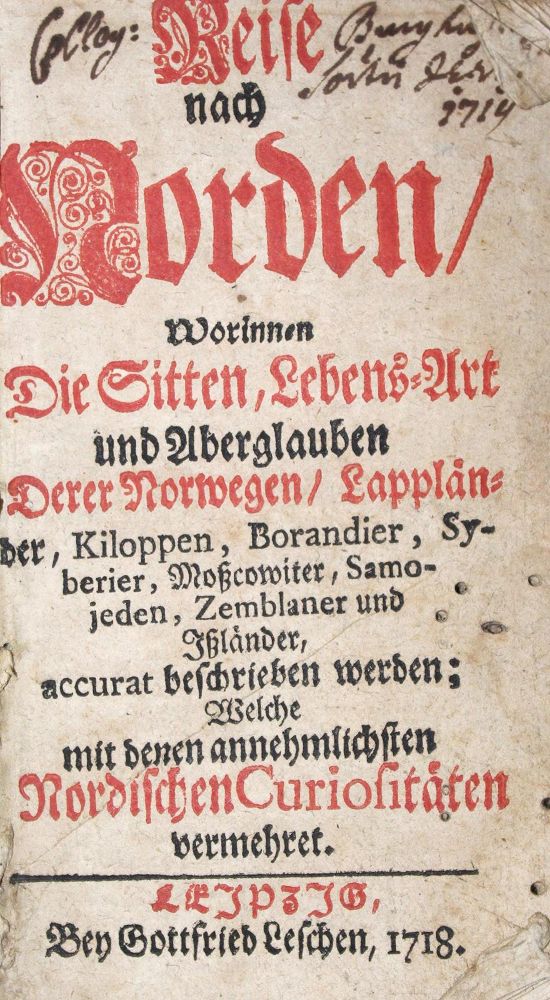 Reise
nach
Norden/
Worinnen
Die Sitten, Lebens-Art
und Aberglauben
Derer Norwegen/ Lapplän-
der, Kiloppen, Borandier, Sy-
berier, Moßcowiter, Samo-
jeden, Zemblaner und
Jßländer,
accurat beschrieben werden;
Welche
mit denen annehmlichsten
Nordischen Curiositäten
vermehret.
LEJPZJG,
Bey Gottfried Leschen, 1718.
1719